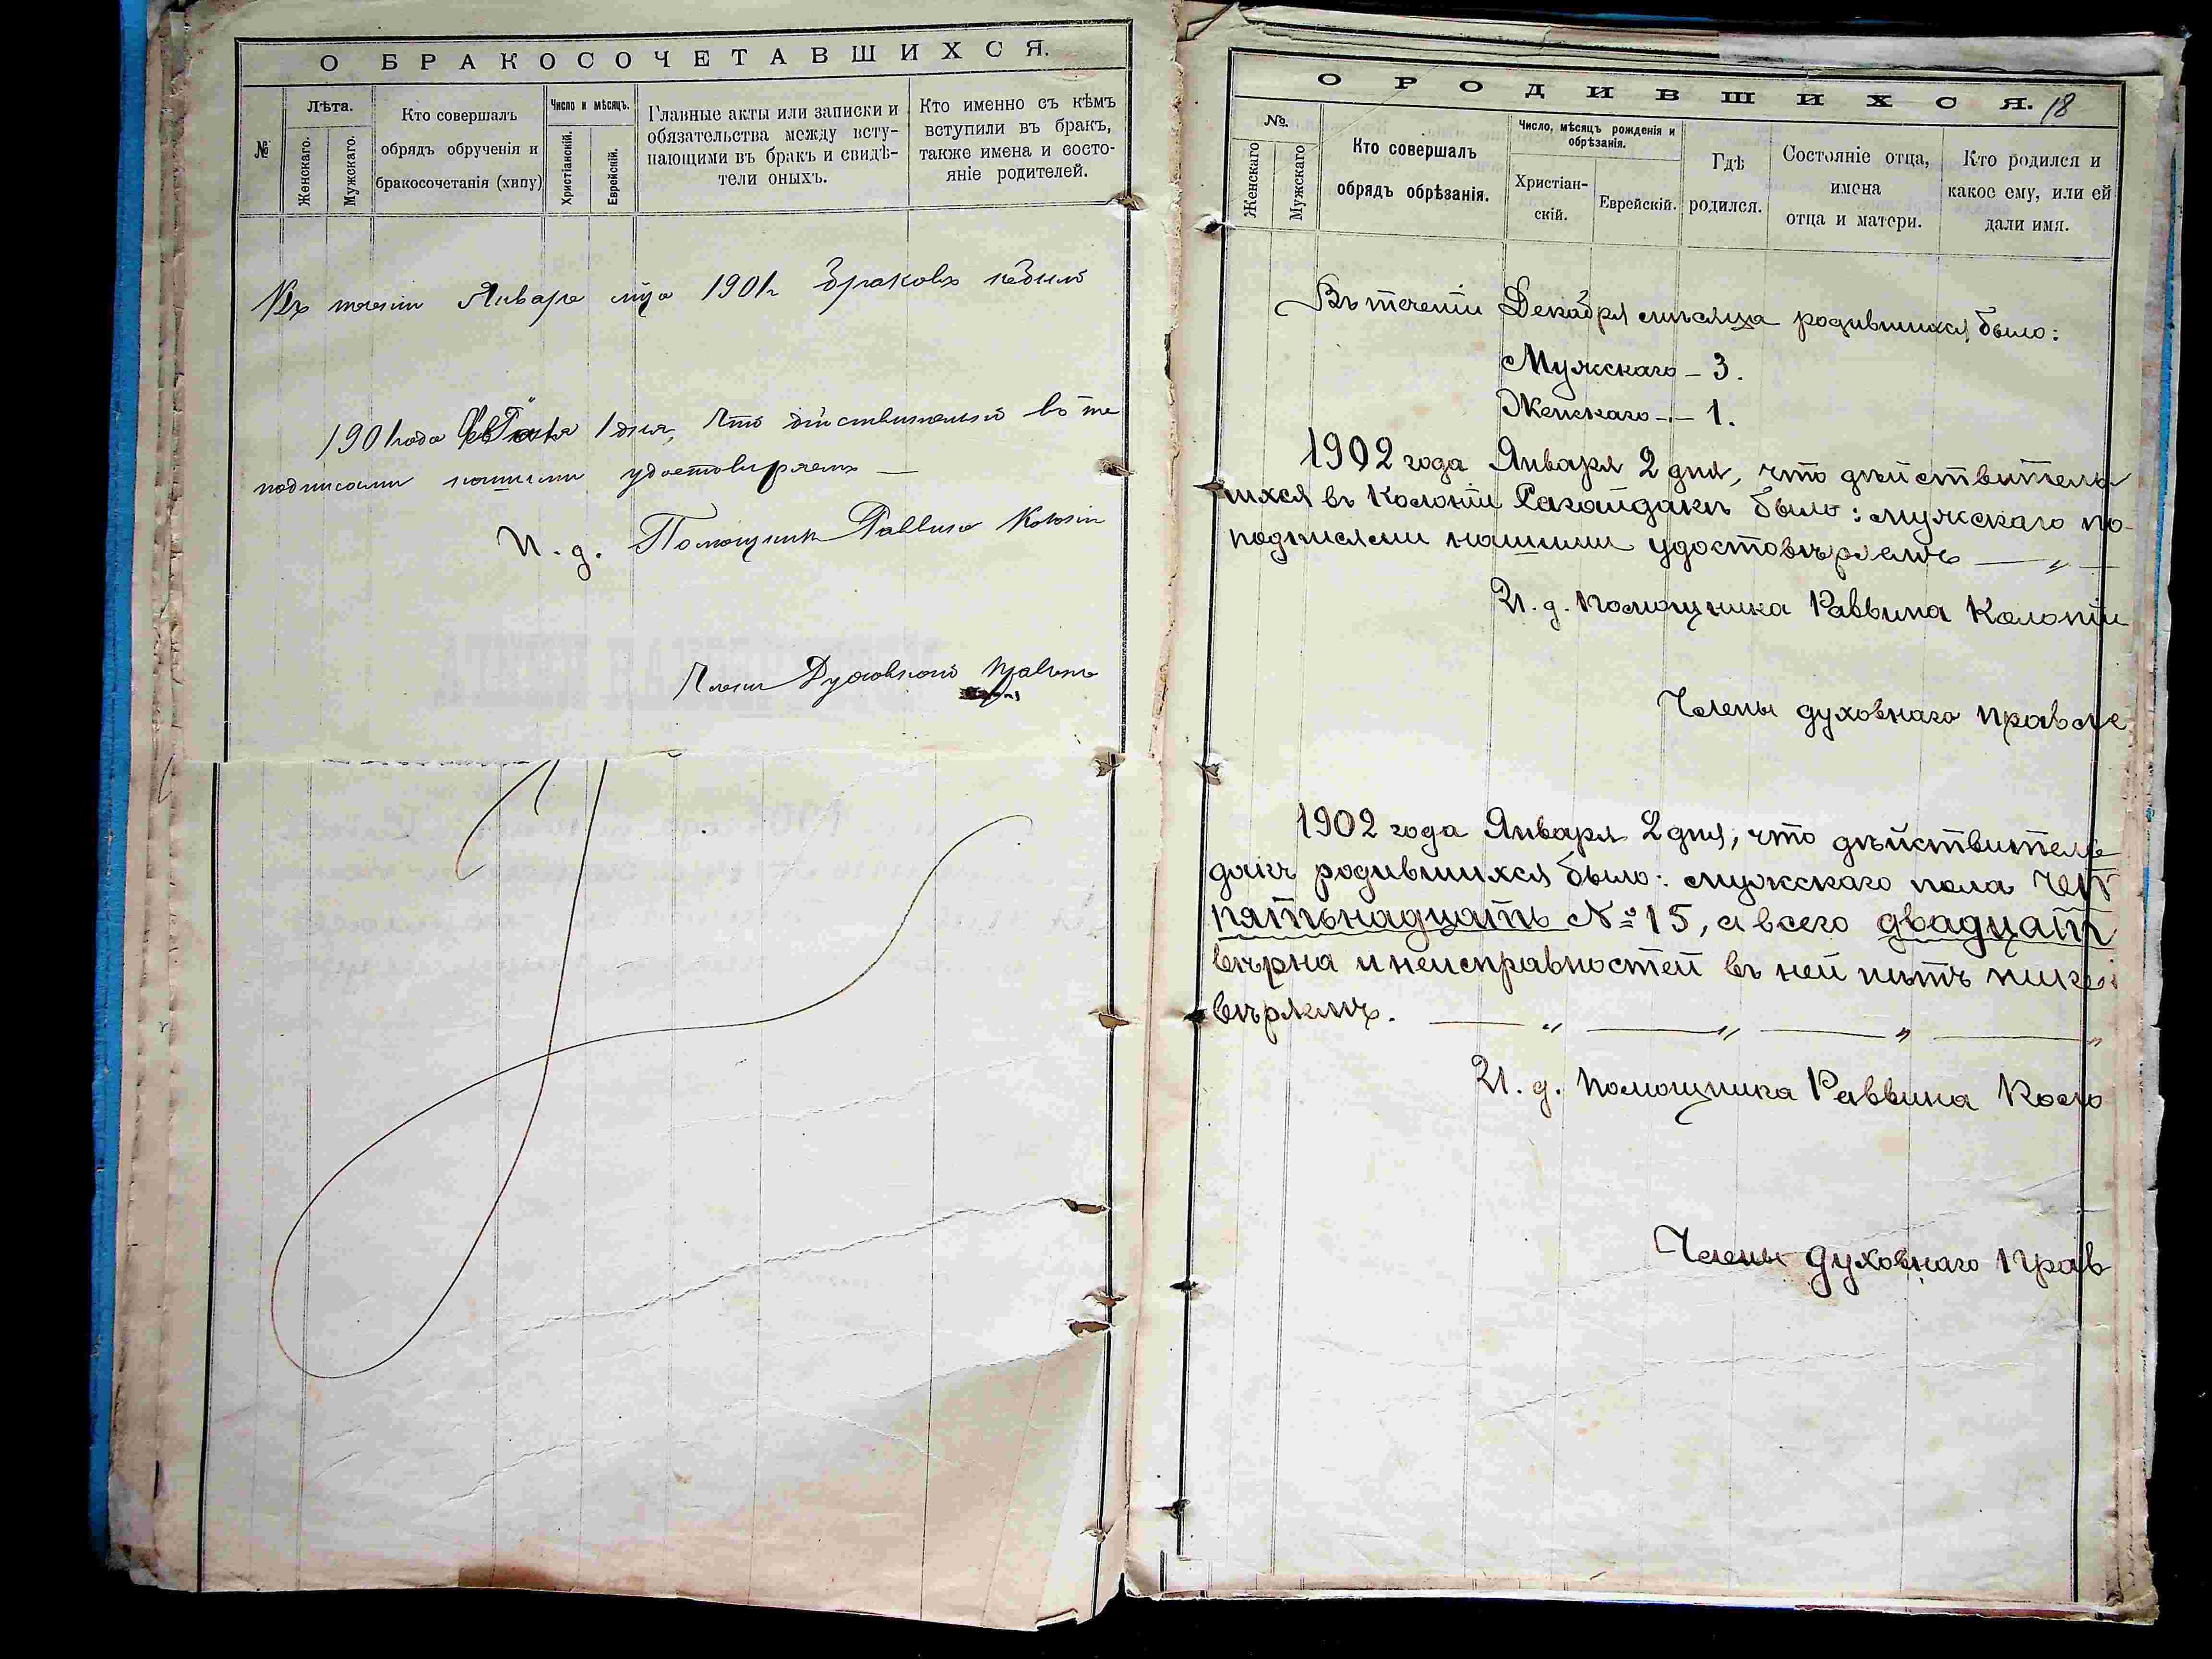 О БРАКОСОЧЕТАВШИХСЯ.
№
Лѣта.
Женскаго.
Мужскаго.
Кто совершалъ
обрядъ обрученія и
бракосочетанія (хипу)
Число и мѣсяцъ.
Христіанскій.
Еврейскій.
Главные акты или записки и
обязательства между всту-
пающими въ бракъ и свидѣ-
тели оныхъ.
Кто именно съ кѣмъ
вступили въ бракъ,
также имена и состо-
яніе родителей.
Въ теченіи Января м-ца 1901 г. браковъ небыло
1901 года 1 дня, что дѣйствительно въ те
подписами нашими удостовѣряемъ —
И. д. Помощник Раввина Колоніи
Члены Духовного Правле
О РОДИВШИХСЯ. 18
№.
Женскаго
Мужскаго
Кто совершалъ
обрядъ обрѣзанія.
Число, мѣсяцъ рожденія и
обрѣзанія.
Христіан-
скій.
Еврейскій.
Гдѣ
родился.
Состояніе отца,
имена
отца и матери.
Кто родился и
какое ему, или ей
дали имя.
Въ теченіи Декабря мѣсяца родившихся было:
Мужскаго – 3.
Женскаго – 1.
1902 года Января 2 дня, что дѣйствительн
шихся въ Колоніи было: мужскаго по-
подписями нашими удостовѣряемъ — „ —
И. д. Помощника Раввина Колоніи
Члены духовнаго правле
1902 года Января 2 дня, что дѣйствитель
дакъ родившихся было: мужскаго пола
пятьнадцать № 15, а всего двадцат
вѣрна и неисправностей въ ней нѣтъ
вѣряемъ. — „ — „ — „ — „
И. д. Помощника Раввина Коло
Члены духовнаго Прав